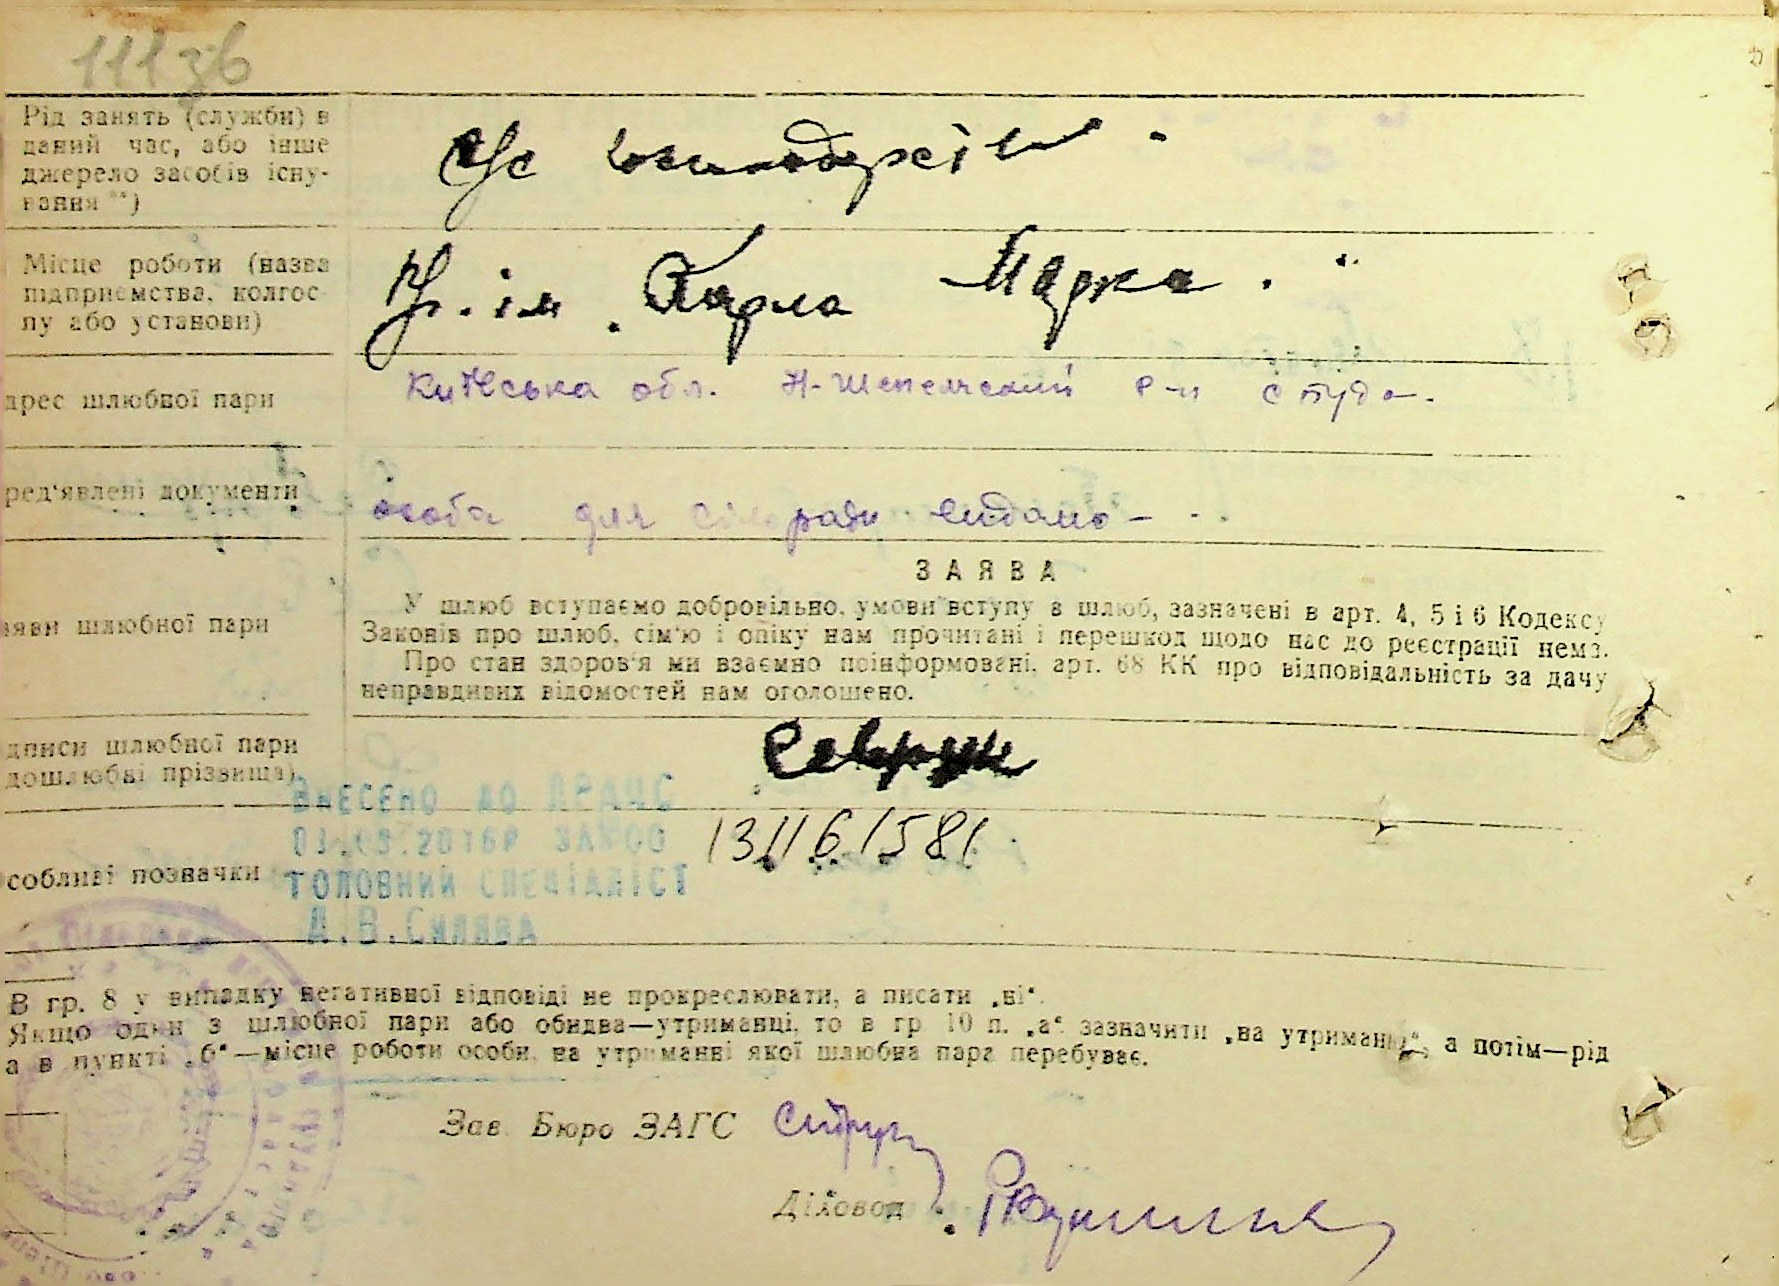 11136
Рід занять (служби) в
даний час, або інше
джерело засобів існу-
вання **)
с/г
Місце роботи (назва
підприємства, колгос-
пу або установи)
ім. Карла Маркса.
дрес шлюбної пари
Київська обл. Н-Шепельський р-н с
ред'явлені документи
особа для сільради видано - . .
ЗАЯВА
аяви шлюбної пари
У шлюб вступаємо добровільно, умови вступу в шлюб, зазначені в арт. 4, 5 і 6 Кодексу
Законів про шлюб, сім'ю і опіку нам прочитані і перешкод щодо нас до реєстрації нема.
Про стан здоров'я ми взаємно поінформовані, арт. 68 КК про відповідальність за дачу
неправдивих відомостей нам оголошено.
дписи шлюбної пари
дошлюбні прізвища)
ВНЕСЕНО ДО ДРАЦС
.2016Р
131161581
собливі позначки
ГОЛОВНИЙ СПЕЦІАЛІСТ
В гр. 8 у випадку негативної відповіді не прокреслювати, а писати „ні“.
Якщо один з шлюбної пари або обидва—утриманці, то в гр 10 п. „а“ зазначити „на утриманні“, а потім—рід
а в пункті „б“—місце роботи особи, на утриманні якої шлюбна пара перебуває.
Зав. Бюро ЗАГС
Діловод